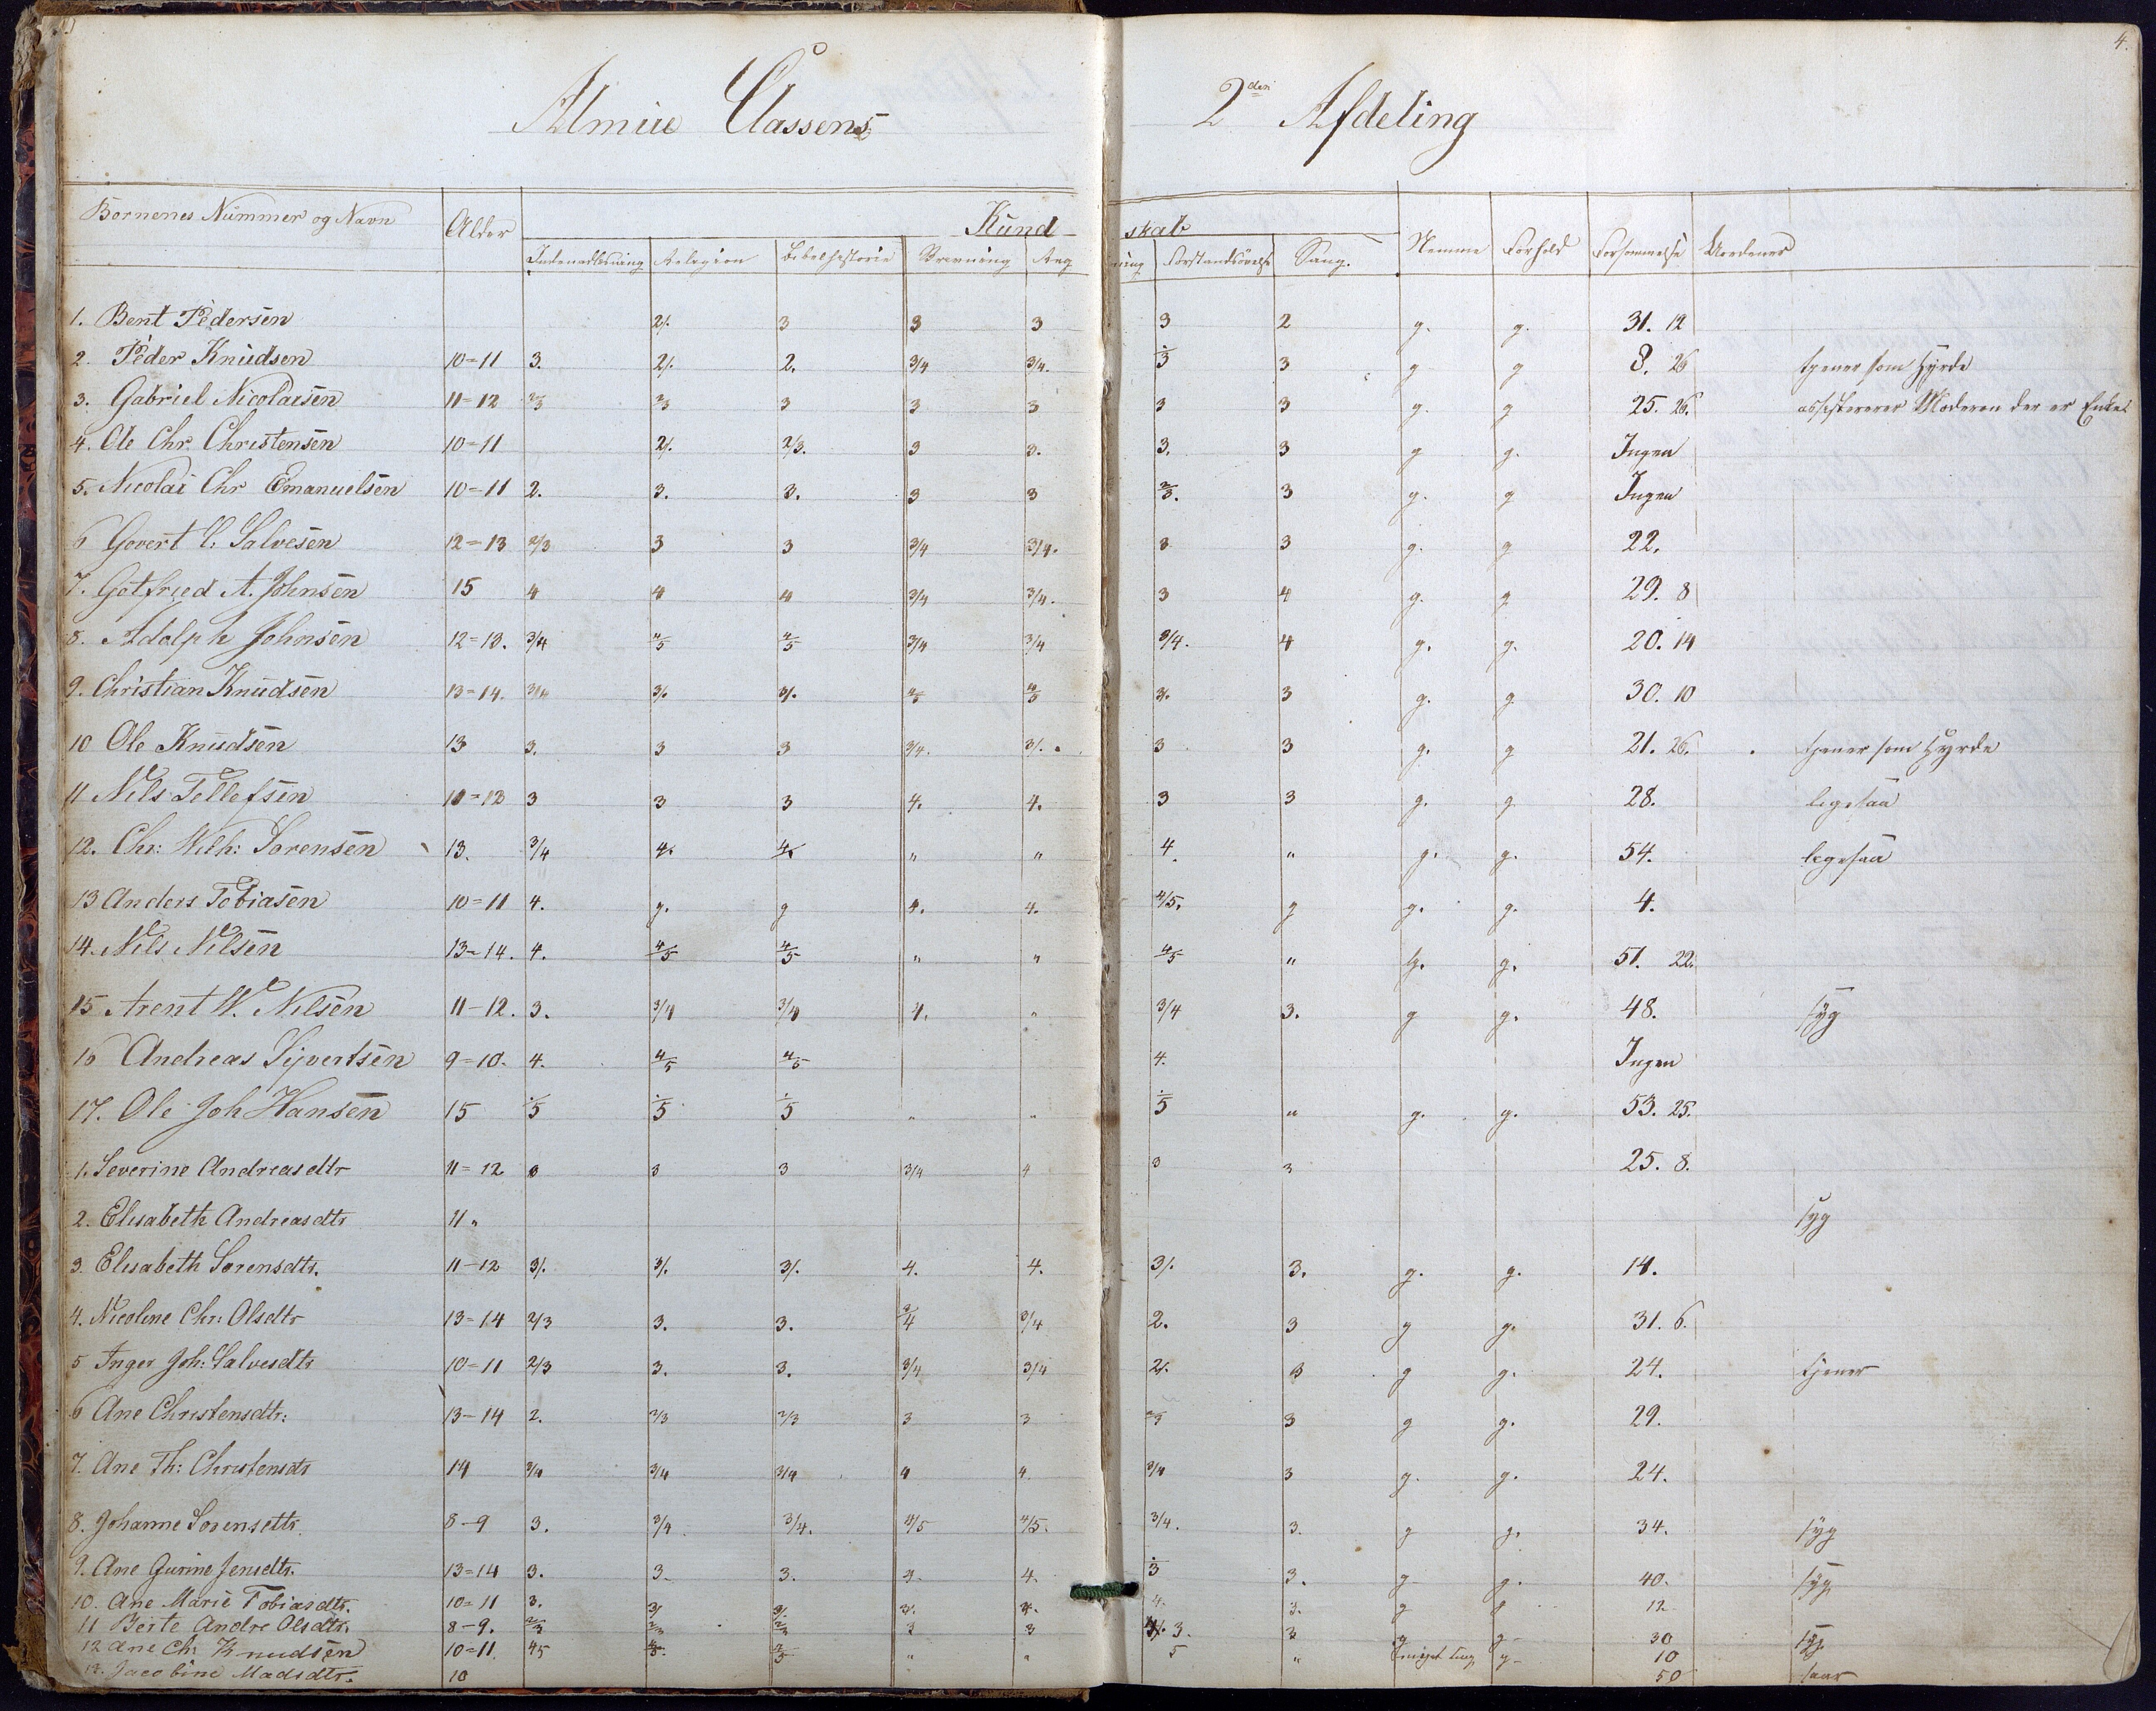 4.
Almue Classens 2den Afdeling
Børnenes Nummer og Navn Alder Kundskab Nemme Forhold Forsømmelse
Indenadlæsning Religion Bibelhistorie Skrivning Regning Forstandsøvelse Sang.
1. Bent Pedersen 2/. 3 3 3 3 2 g. g. 31. 12
2. Peder Knudsen 10=11 3. 2/. 2. 3/4 3/4. ./3 3 g g 8. 26 tjener som Hyrde
3. Gabriel Nicolaisen 11=12 2/3 2/3 3 3 3 3 3 g. g 25. 26. assisterer Moderen der er Enke
4. Ole Chr. Christensen 10=11 2/. 2/3. 3 3. 3. 3 g g. Ingen
5. Nicolai Chr Emanuelsen 10=11 2. 3. 3. 3 3 2/3. 3 g. g Ingen
6 Govert C. Salvesen 12=13 2/3 3 3 3/4 3/4. 3 3 g. g 22.
7. Gotfried A. Johnsen 15 4 4 4 3/4 3/4. 3 4 g. g 29. 8
8. Adolph Johnsen 12=13. 3/4 4/5 4/5 3/4 3/4 3/4. 4 g. g. 20. 14
9. Christian Knudsen 13=14. 3/4 3/. 3/. 4/5 4/5 3/. 3 g. g 30. 10
10 Ole Knudsen 13 3. 3 3 3/4. 3/. 3 3 g. g 21. 26. tjener som Hyrde
11 Nils Tellefsen 10=13 3 3 3 4. 4. 3 3 g. g 28. ligesaa
12. Chr: Wilh: Sørensen 13. 3/4 4. 4. " " 4. " g. g. 54. ligesaa
13 Anders Tobiasen 10=11 4. g. g 4. 4. 4/5. g g. g. 4.
14. Nils Nilsen 13=14. 4. 4/5 4/5 " " 4/5 " g. g. 51. 22.
15 Arent W. Nilsen 11-12. 3. 3/4 3/4 4. " 3/4 3. g g. 48. syg
16 Andreas Syvertsen 9=10. 4. 4/5 4/5 4. Ingen
17. Ole Joh Hansen 15 ./5 ./5 ./5 " " ./5 " g. g. 53. 25.
1. Severine Andreasdtr 11=12 3 3 3 3/4 4 3 3 25. 8.
2. Elisabeth Andreasdtr 11 " syg
3. Elisabeth Sørensdtr. 11-12 3/. 3/. 3/. 4. 4. 3/. 3. g. g. 14.
4. Nicoline Chr: Olsdtr 13=14 2/3 3. 3. 3/4 3/4 2. 3 g g. 31. 6.
5 Inger Joh: Salvesdtr 10=11 2/3 3. 3. 3/4 3/4 2/. 3 g g. 24. tjener
6 Ane Christensdtr: 13-14 2. 2/3 2/3 3 3 2/3 3 g g. 29.
7. Ane Th: Christensdtr 14 3/4 3/4 3/4 4 4. 3/4 3 g. g. 24.
8. Johanne Sørensdtr. 8-9 3. 3/4 3/4. 4/5 4/5. 3/4. 3. g g. 34. syg
9. Ane Gurine Jensdtr. 13=14 3. 3. 3. 4. 4. ./3 3. g g. 40. syg
10. Ane Marie Tobiasdtr. 10=11 3. 3/. 3/. 3/. 4. 4. 3. g g 12
11 Berte Andre Olsdtr. 8-9. 2/3 2/3 2/3 3 3 3. 3 g g 30 syg
12 Ane Ch: Knudsen 10=11. 4/5 4/5. 4/5 " " 5 " g 10
13. Jacobine Madsdtr. 10 50